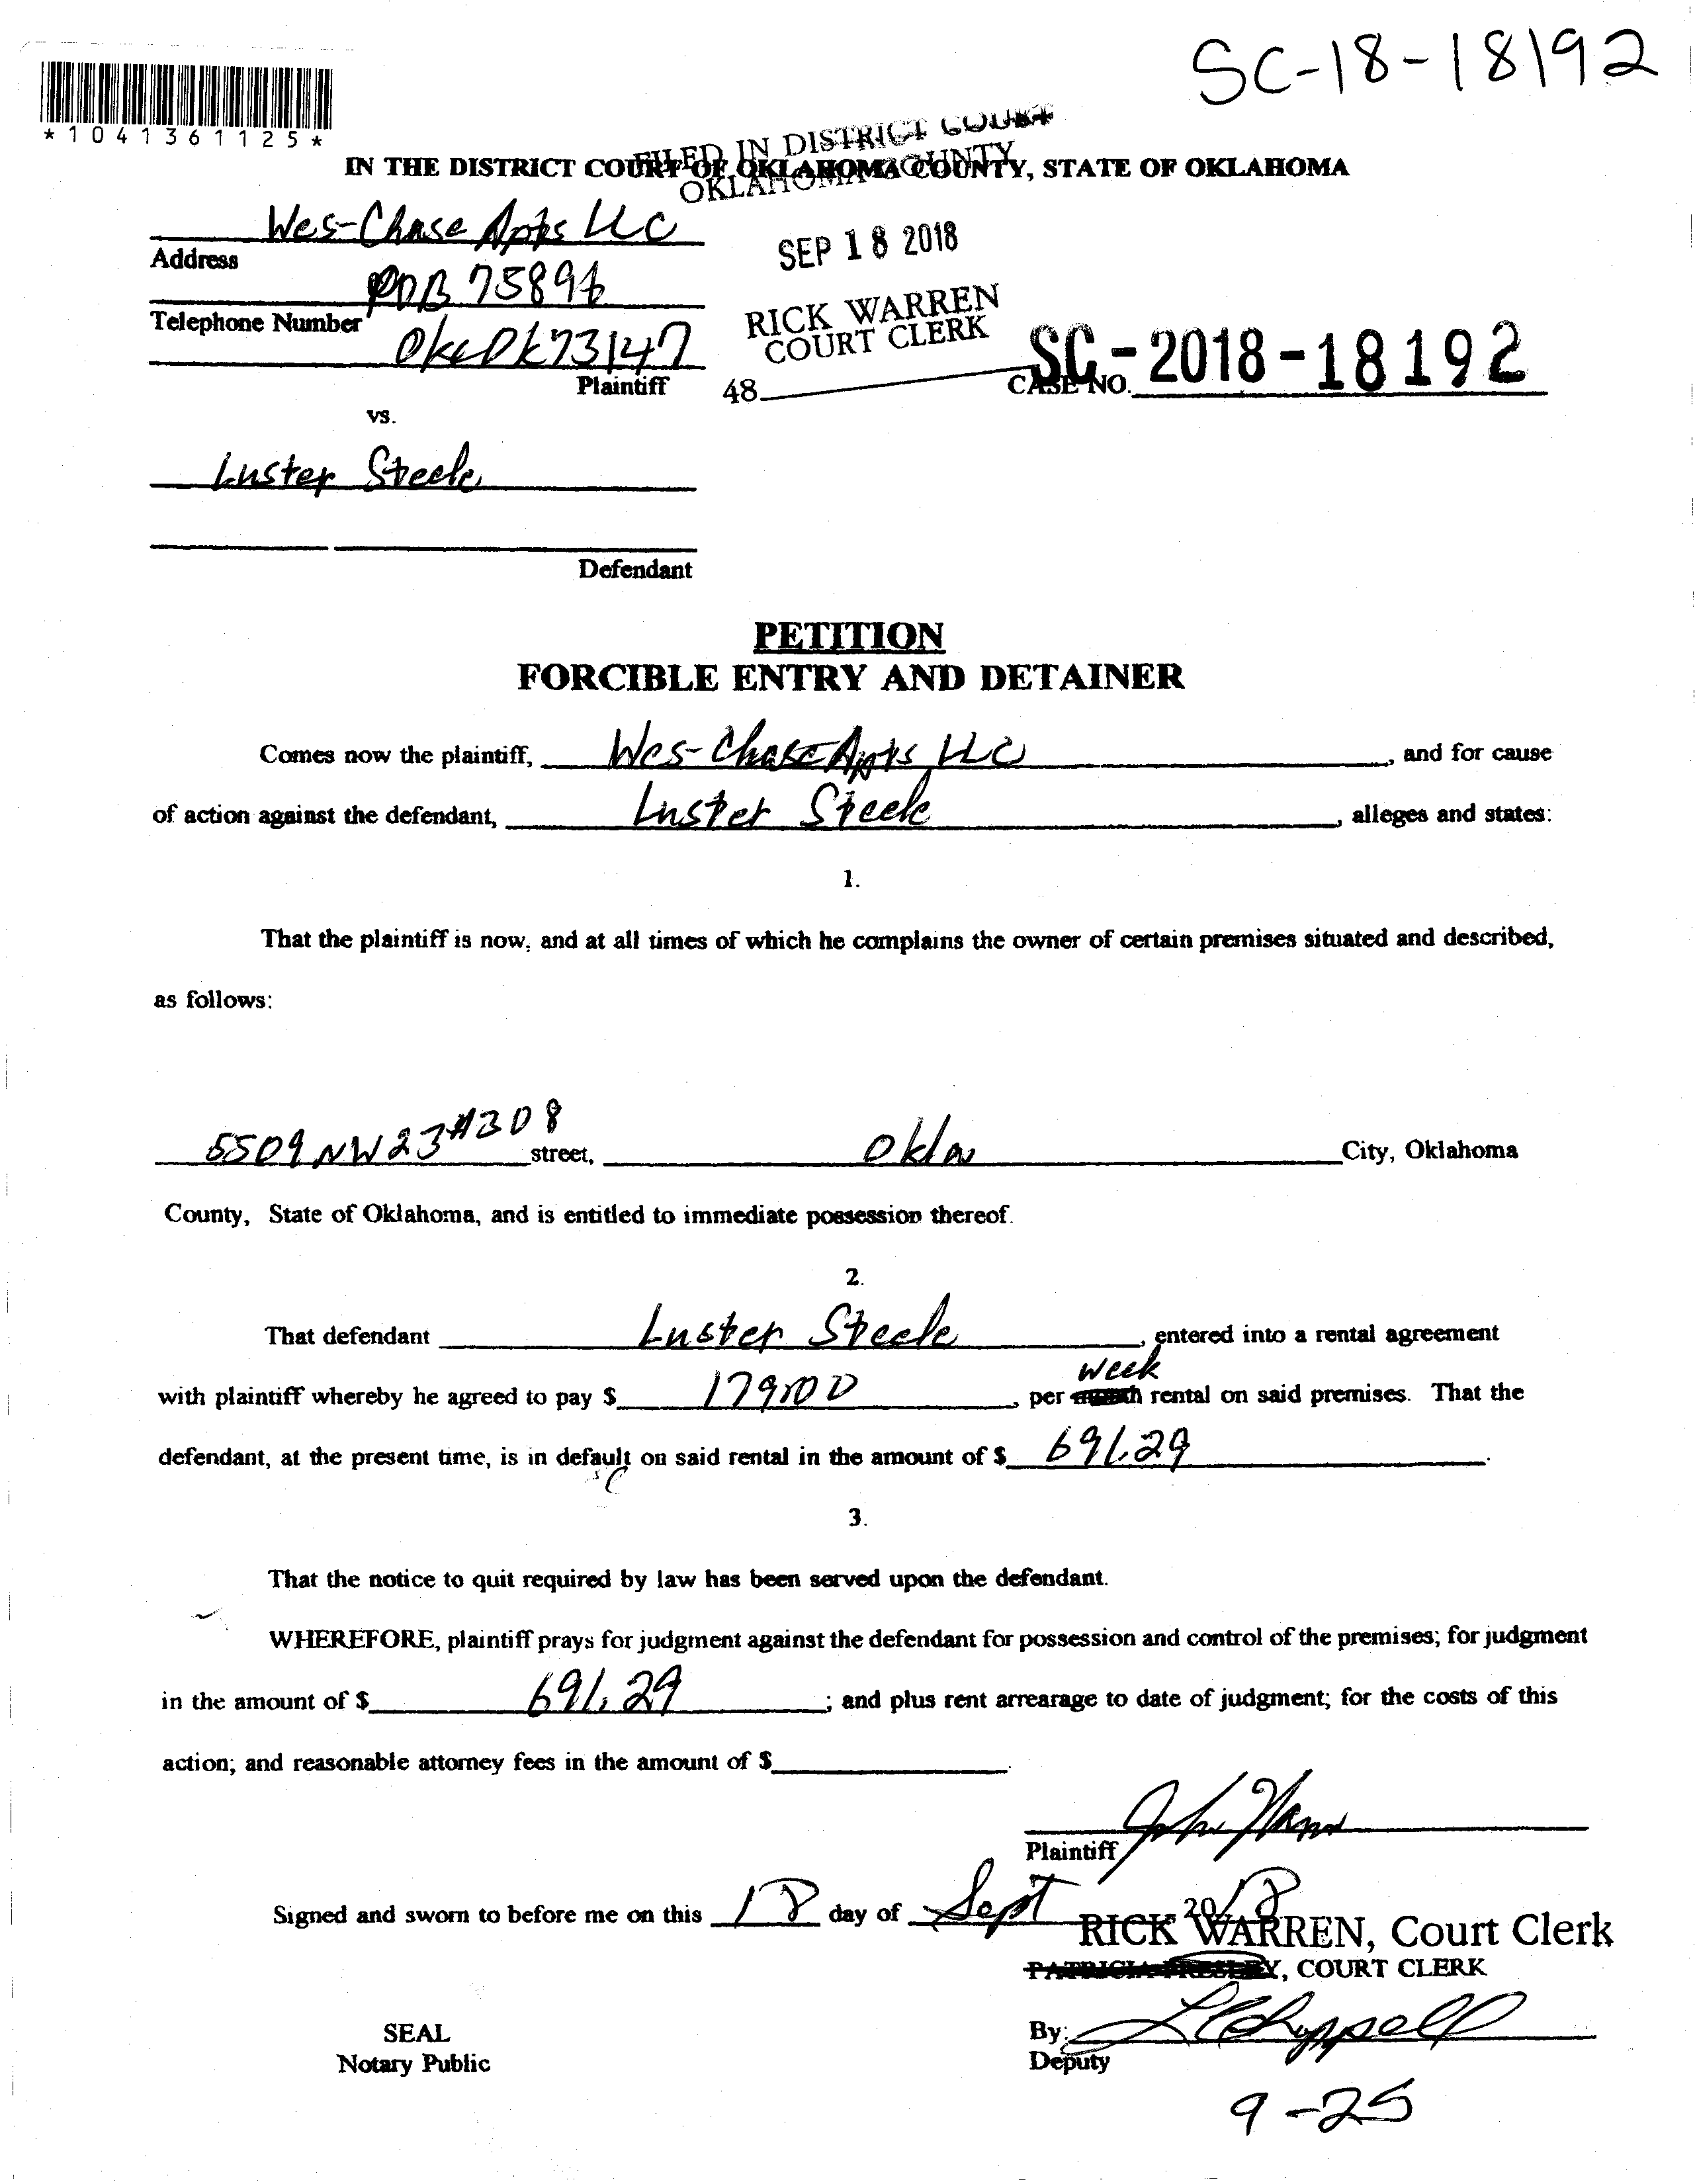 SC-18-18192
*1041361125*
FILED IN DISTRICT COURT
IN THE DISTRICT COURT OF OKLAHOMA COUNTY, STATE OF OKLAHOMA
OKLAHOMA COUNTY
Wes-Chase Apts LLC
Address
SEP 18 2018
POB 75896
Telephone Number
RICK WARREN
COURT CLERK
Okc Ok 73147
Plaintiff
48
CASE NO. SC-2018-18192
vs.
Luster Steele
Defendant
PETITION
FORCIBLE ENTRY AND DETAINER
Comes now the plaintiff, Wes-Chase Apts LLC, and for cause
of action against the defendant, Luster Steele, alleges and states:
1.
That the plaintiff is now, and at all times of which he complains the owner of certain premises situated and described,
as follows:
5509 NW 23 #308 street, Okla City, Oklahoma
County, State of Oklahoma, and is entitled to immediate possession thereof.
2.
That defendant Luster Steele, entered into a rental agreement
week
with plaintiff whereby he agreed to pay $ 179.00, per month rental on said premises. That the
defendant, at the present time, is in default on said rental in the amount of $ 691.29.
3.
That the notice to quit required by law has been served upon the defendant.
WHEREFORE, plaintiff prays for judgment against the defendant for possession and control of the premises; for judgment
in the amount of $ 691.29; and plus rent arrearage to date of judgment; for the costs of this
action; and reasonable attorney fees in the amount of $
Plaintiff
Signed and sworn to before me on this 18 day of Sept 2018
RICK WARREN, Court Clerk
PATRICIA PRESLEY, COURT CLERK
SEAL
By:
Notary Public
Deputy
9-25